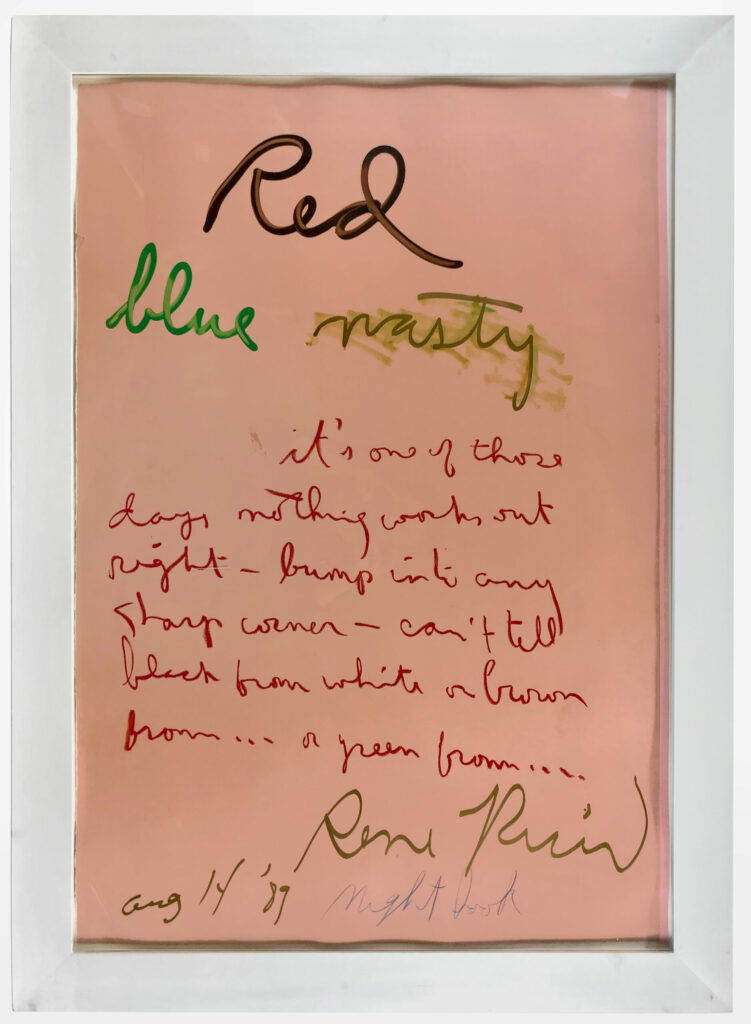 Red
blue nasty
it's one of those
days nothing works out
right – bump into any
sharp corner – can't tell
black from white or brown
from... or green from....
Rene Ricard
aug 14 '89 night book